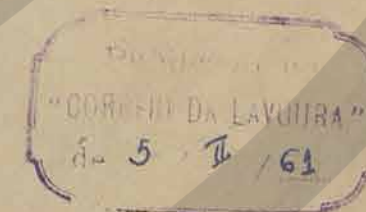 "CORREIO DA LAVOURA"
de 5 / II / 61